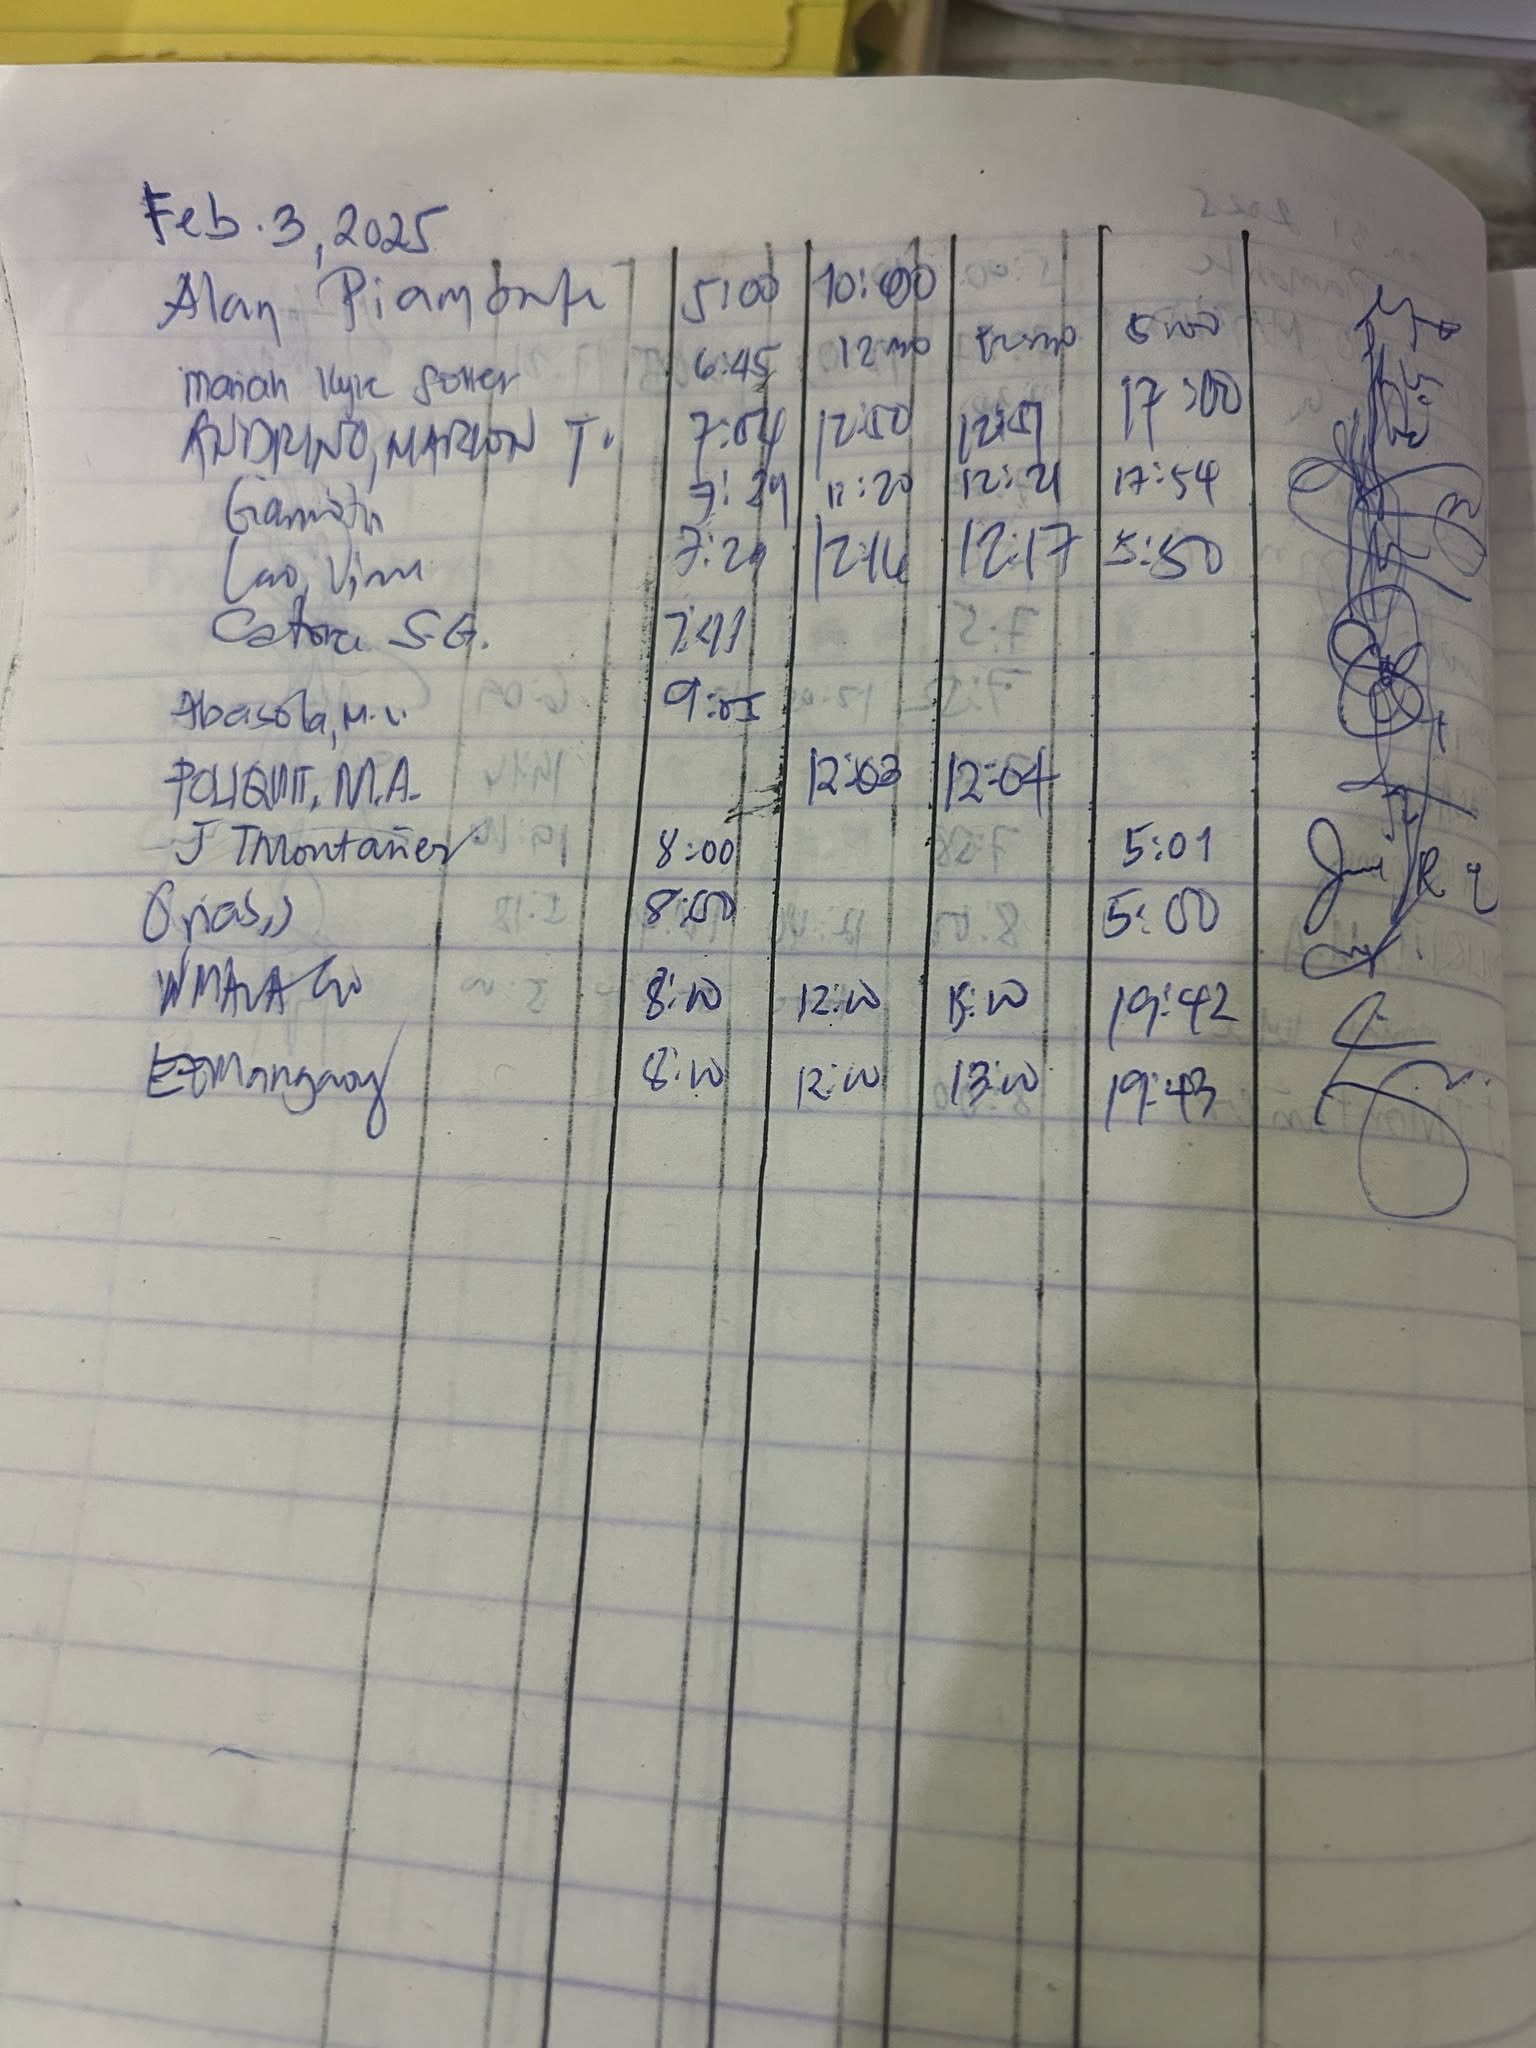 Feb. 3, 2025
Alan Piamonte 5:00 10:00
Mariah Kyle 6:45 12:00 5:00
ANDRINO, MARLON T. 7:04 12:50 12:51 17:00
7:29 12:20 12:21 17:54
Lao, 7:29 12:16 12:17 5:50
S.G. 7:41
Abasola, M.V. 9:05
POLIQUIT, M.A. 12:03 12:04
J TMontañer 8:00 5:01
Orias, J 8:00 5:00
WMALA 8:10 12:10 19:42
Mangaoy 8:10 12:10 13:10 19:43